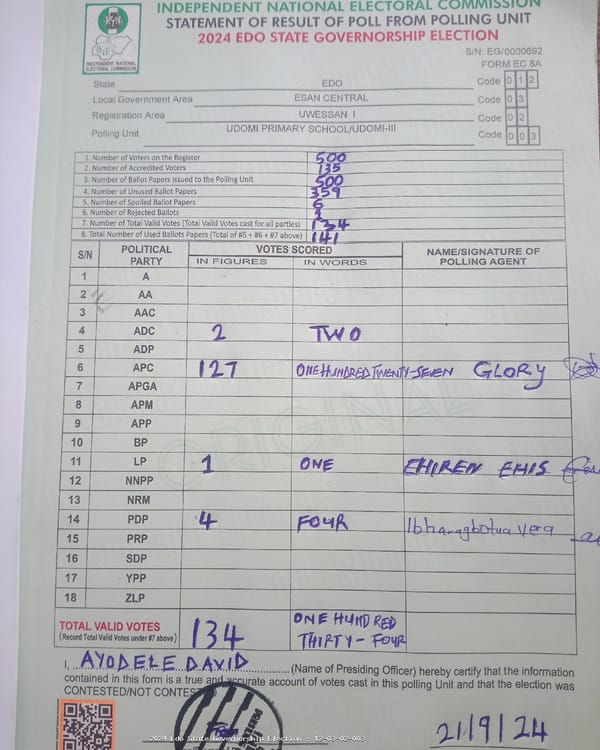 INDEPENDENT NATIONAL ELECTORAL COMMISSION
STATEMENT OF RESULT OF POLL FROM POLLING UNIT
2024 EDO STATE GOVERNORSHIP ELECTION
S/N: EG/0000692
FORM EC 8A
INEC
INDEPENDENT NATIONAL
ELECTORAL COMMISSION
State EDO Code 0 1 2
Local Government Area ESAN CENTRAL Code 0 3
Registration Area UWESSAN I Code 0 2
Polling Unit UDOMI PRIMARY SCHOOL/UDOMI-III Code 0 0 3
1. Number of Voters on the Register 500
2. Number of Accredited Voters 135
3. Number of Ballot Papers Issued to the Polling Unit 500
4. Number of Unused Ballot Papers 359
5. Number of Spoiled Ballot Papers 6
6. Number of Rejected Ballots 1
7. Number of Total Valid Votes (Total Valid Votes cast for all parties) 134
8. Total Number of Used Ballots Papers (Total of #5 + #6 + #7 above) 141
S/N POLITICAL PARTY VOTES SCORED NAME/SIGNATURE OF POLLING AGENT
IN FIGURES IN WORDS
1 A
2 AA
3 AAC
4 ADC 2 TWO
5 ADP
6 APC 127 ONE HUNDRED TWENTY-SEVEN GLORY
7 APGA
8 APM
9 APP
10 BP
11 LP 1 ONE EHIREN EHIS
12 NNPP
13 NRM
14 PDP 4 FOUR
15 PRP
16 SDP
17 YPP
18 ZLP
ORIGINAL
TOTAL VALID VOTES 134 ONE HUNDRED
(Record Total Valid Votes under #7 above) THIRTY-FOUR
I, AYODELE DAVID (Name of Presiding Officer) hereby certify that the information
contained in this form is a true and accurate account of votes cast in this polling Unit and that the election was
CONTESTED/NOT CONTES
2024 Edo State Governorship Election - 12-03-02-003
21/9/24